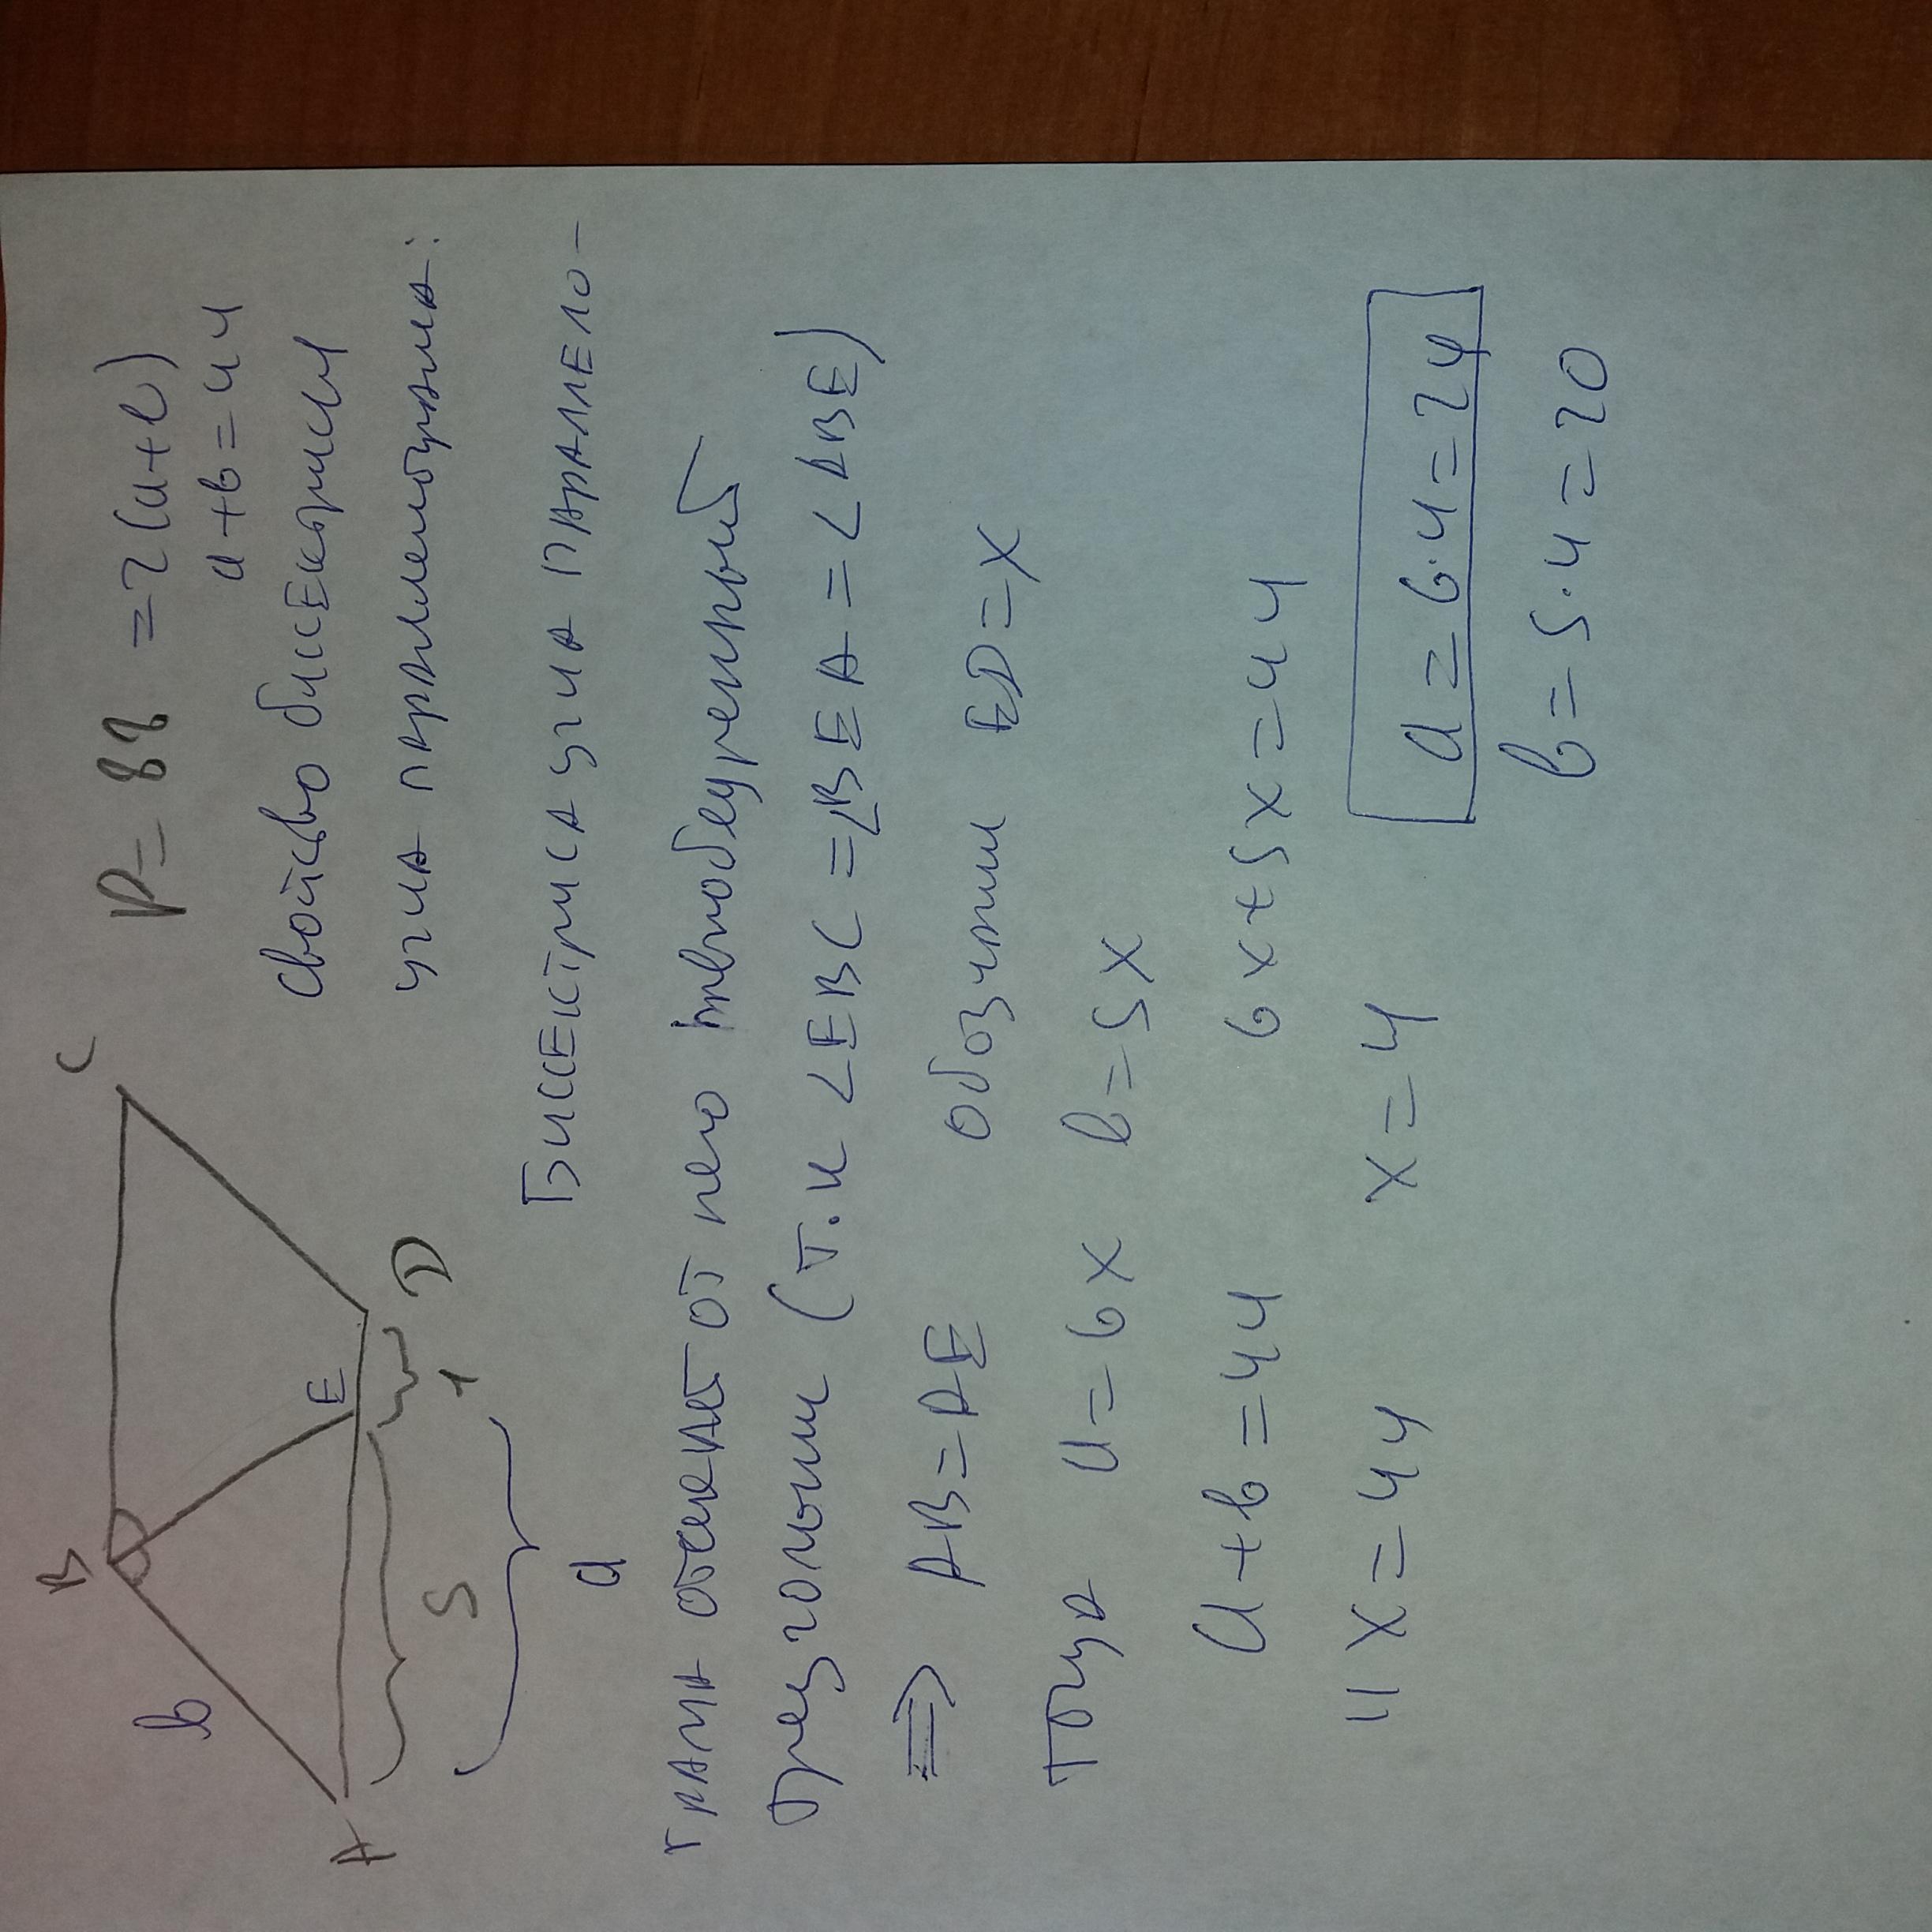 B C P = 88 = 2(a+b)
b a+b=44
A E D Свойство биссектрисы
5 1 угла параллелограма:
a Биссектриса угла паралело-
грама отсекает от него равнобедренный
треугольник (т.к ∠EBC = ∠BEA = ∠ABE)
⇒ AB = AE обозначим ED = X
Тогда a = 6x b = 5x
a + b = 44 6x + 5x = 44
11x = 44 x = 4 a = 6·4 = 24
b = 5·4 = 20